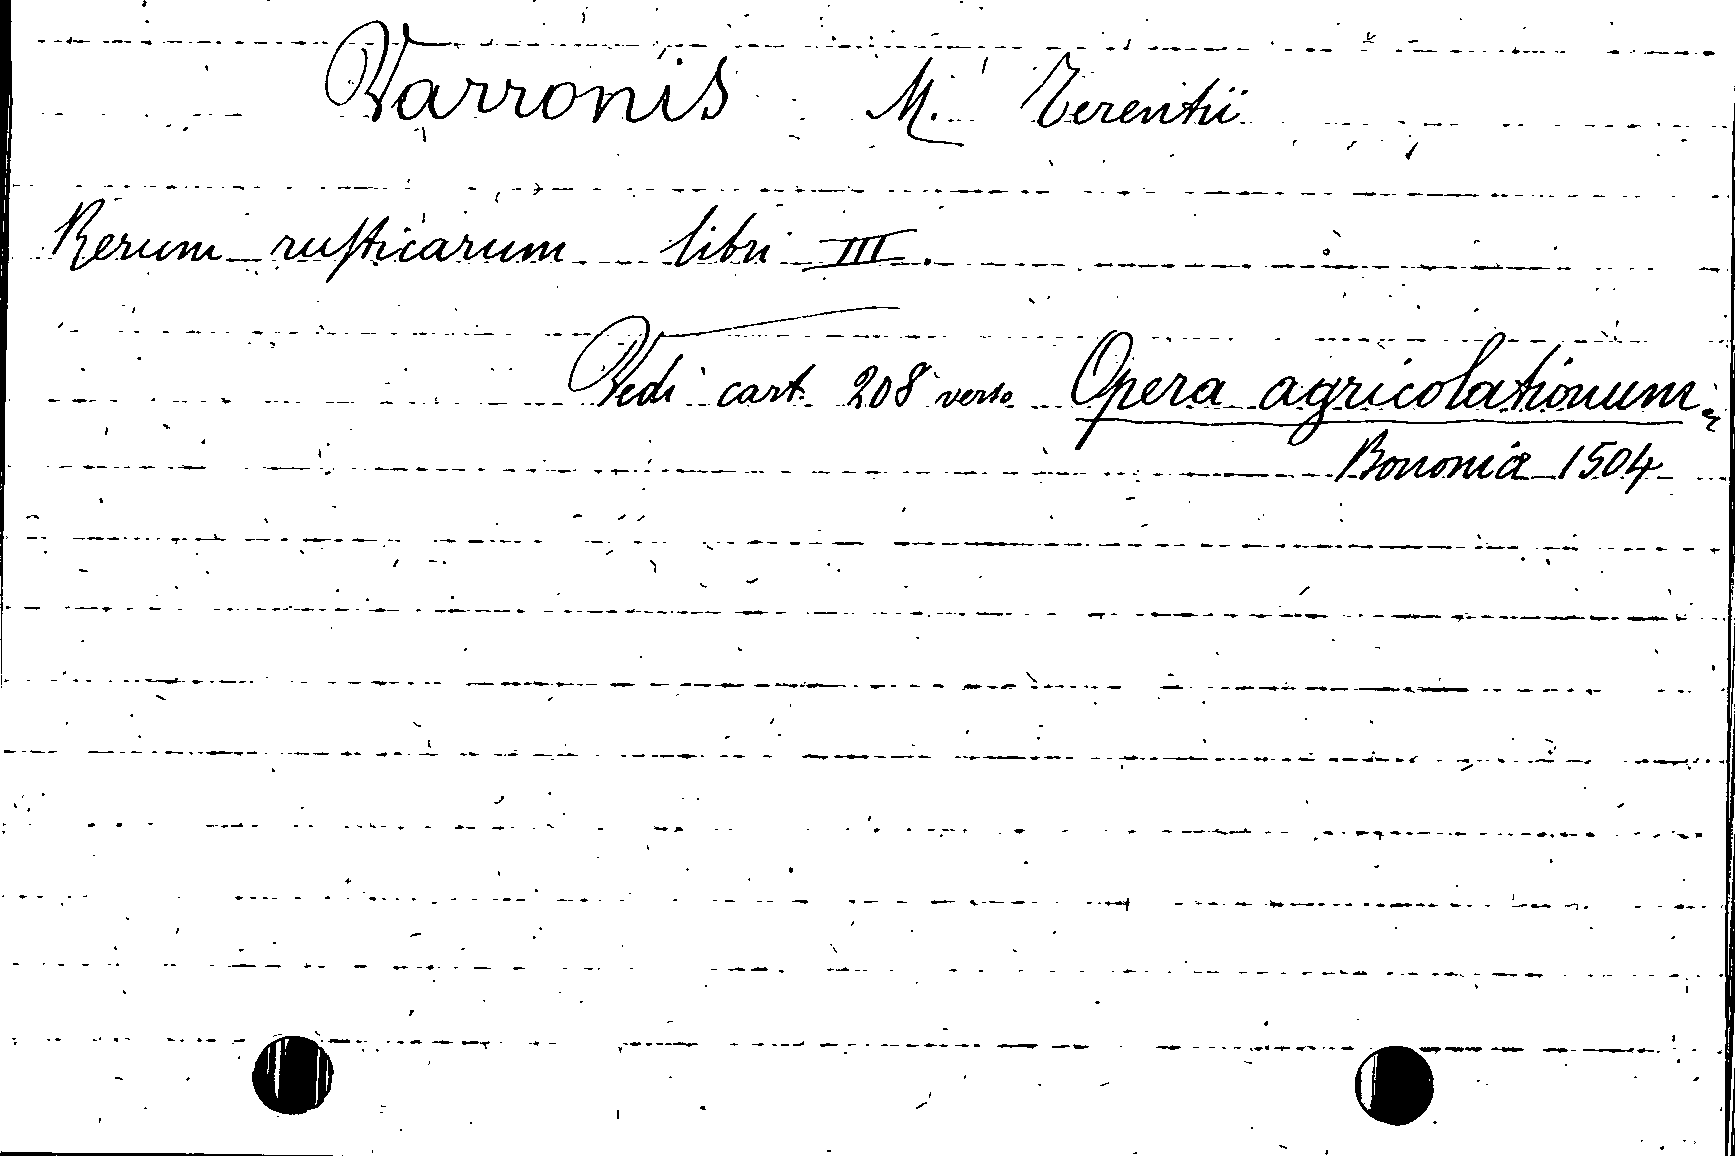 Varronis M. Terentii
Rerum rusticarum libri III.
Vedi cart. 208 verso Opera agricolationum.
Bononiæ 1504